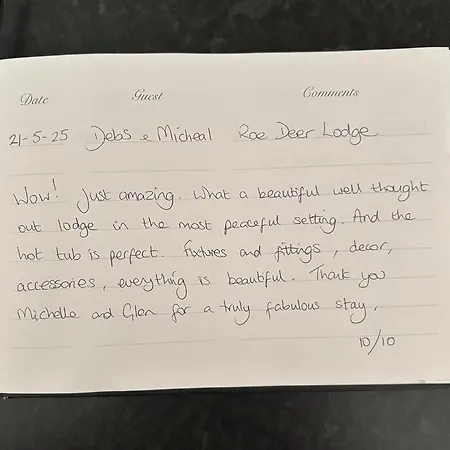 Date Guest Comments
21-5-25 Debs & Micheal Roe Deer Lodge
Wow! Just amazing. What a beautiful well thought
out lodge in the most peaceful setting. And the
hot tub is perfect. fixtures and fittings, decor,
accessories, everything is beautiful. Thank you
Michelle and Glen for a truly fabulous stay.
10/10